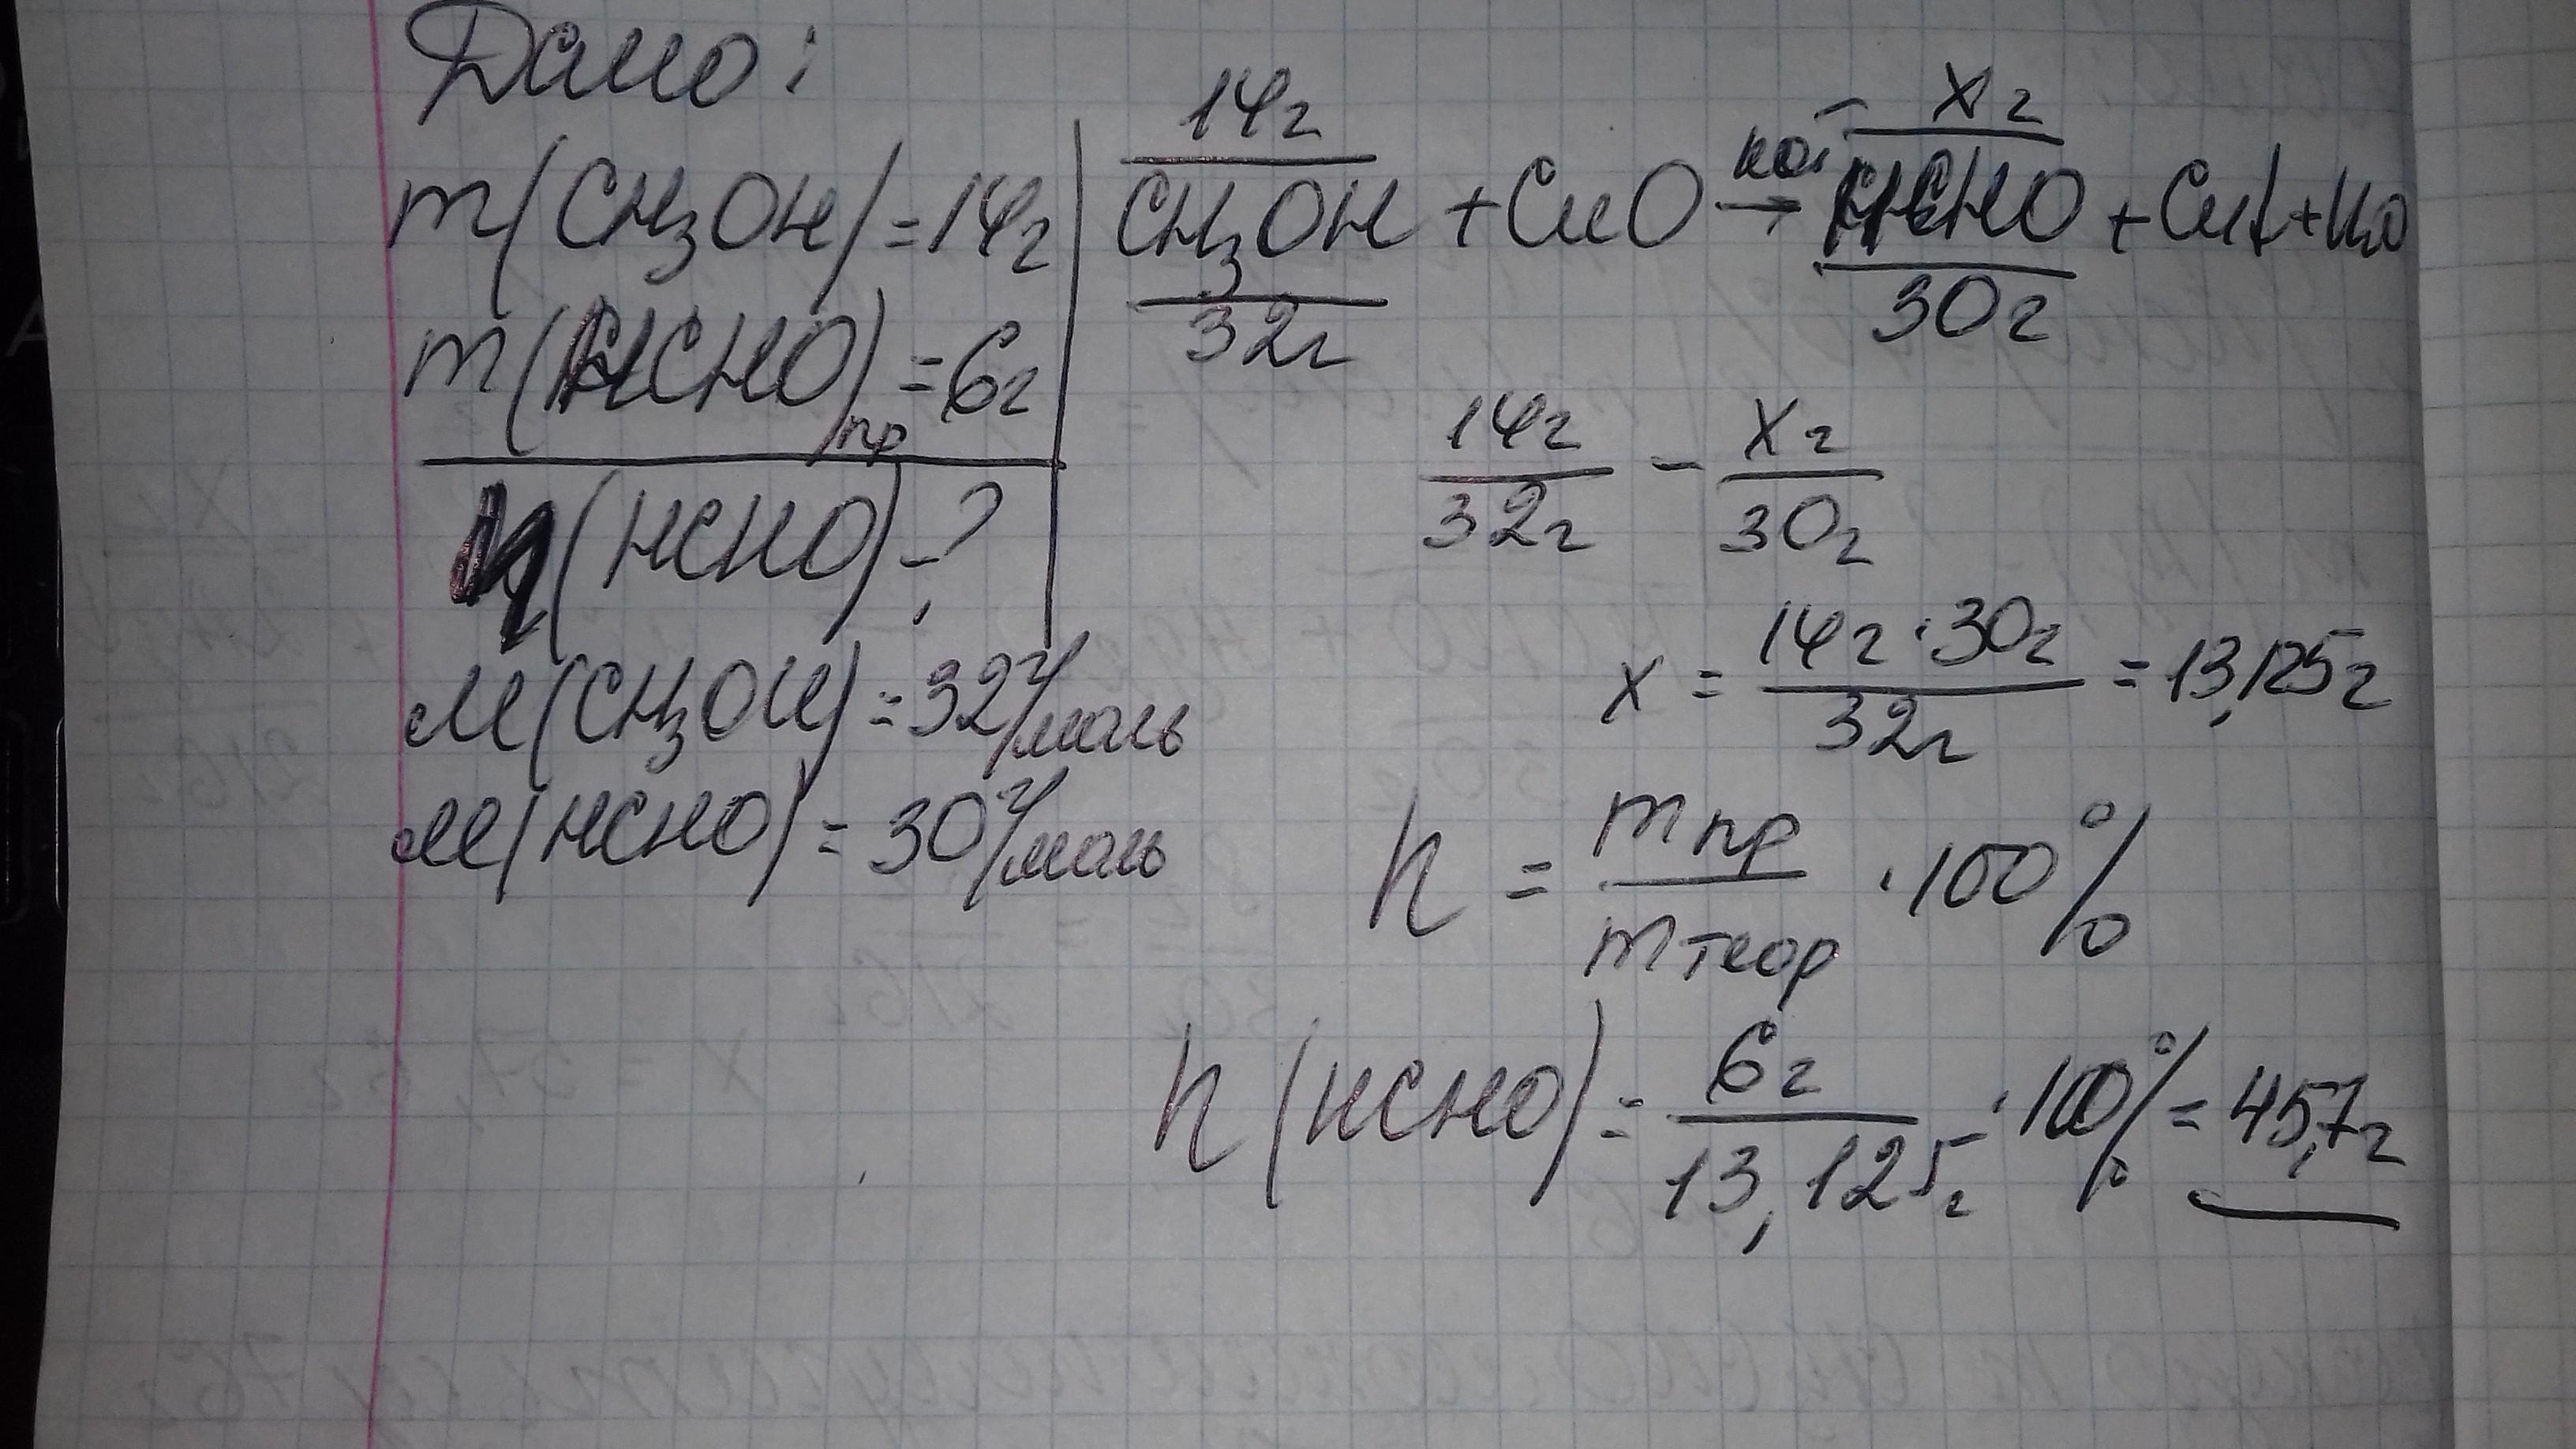 Дано:
m(CH3OH)=14г
m(HCHO)пр=6г
η(HCHO)-?
M(CH3OH)=32г/моль
M(HCHO)=30г/моль
14г xг
CH3OH + CuO → HCHO + Cu↓ + H2O
32г 30г
14г/32г - xг/30г
x = 14г·30г/32г = 13,125г
h = mпр/mтеор ·100%
h(HCHO) = 6г/13,125г ·100% = 45,7г